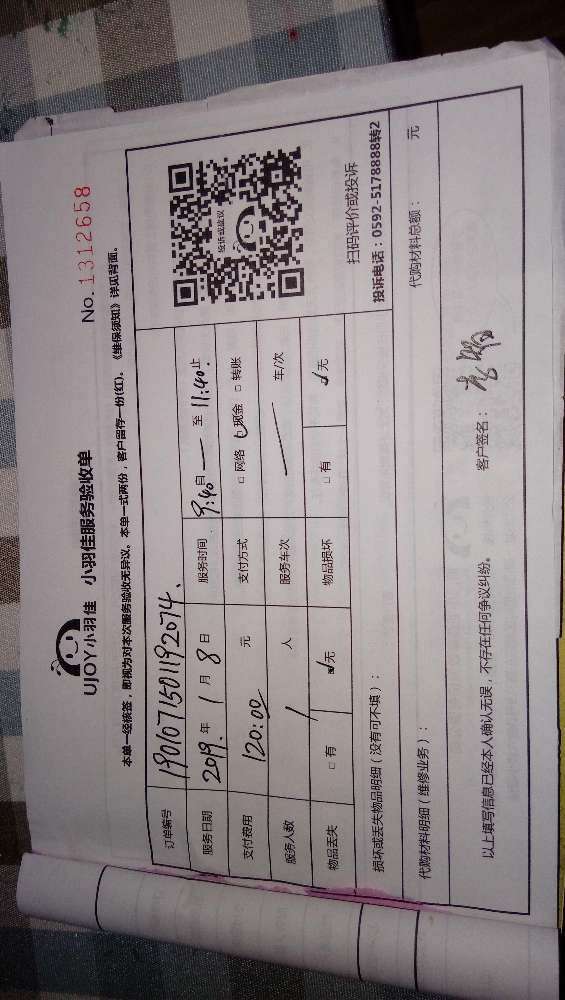 UJOY小羽佳 小羽佳服务验收单
No.1312658
本单一经核签，即视为对本次服务验收无异议。本单一式两份，客户留存一份(红)。《维保须知》详见背面。
订单编号 1901071501192074.
服务日期 2019.年 1 月 8 日 服务时间 9:40自 — 至 11:40止
支付费用 120:00 元 支付方式 □ 网络 □ 现金 □ 转账
服务人数 1 人 服务车次 — 车/次
物品丢失 □ 有 ☑无 物品损坏 □ 有 ☑无
投诉或建议
扫码评价或投诉
投诉电话：0592-5178888转2
损坏或丢失物品明细（没有可不填）：
代购材料明细（维修业务）： 代购材料总额： 元
以上填写信息已经本人确认无误，不存在任何争议纠纷。 客户签名：